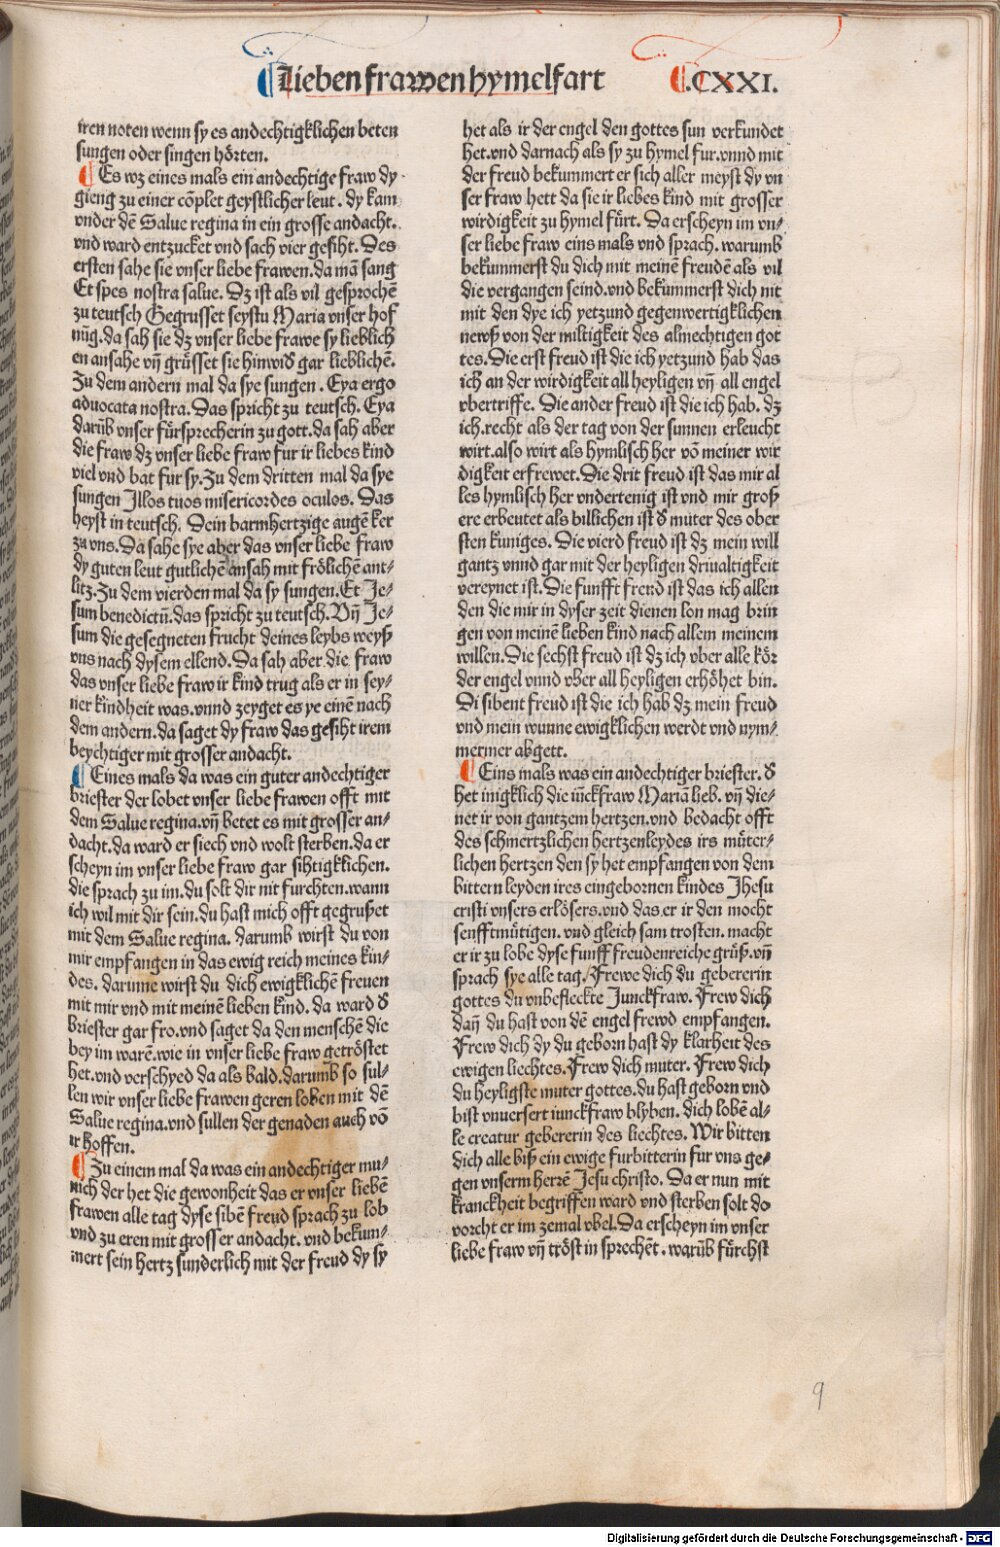 ¶ Lieben frawen hymelfart ¶.CXXI.
iren noten wenn sy es andechtigklichen beten
sungen oder singen hörten.
¶ Es wz eines mals ein andechtige fraw dy
gieng zu einer cōplet geystlicher leut. dy kam
vnder dē Salue regina in ein grosse andacht.
vnd ward entzucket vnd sach vier gesiht. Des
ersten sahe sie vnser liebe frawen. da mā sang
Et spes nostra salue. Dz ist als vil gesprochē
zu teutsch Gegrusset seystu Maria vnser hof
nūg. da sah sie dz vnser liebe frawe sy lieblich
en ansahe vn̄ grüsset sie hinwid gar lieblichē.
Zu dem andern mal da sye sungen. Eya ergo
aduocata nostra. Das spricht zu teutsch. Eya
darūb vnser fürsprecherin zu gott. da sah aber
die fraw dz vnser liebe fraw fur ir liebes kind
viel vnd bat fur sy. Zu dem dritten mal da sye
sungen Illos tuos misericordes oculos. Das
heyst in teutsch. Dein barmhertzige augē ker
zu vns. Da sahe sye aber das vnser liebe fraw
dy guten leut gutlichē ansah mit frölichē ant⸗
litz. Zu dem vierden mal da sy sungen. Et Je⸗
sum benedictū. das spricht zu teutsch. Vn̄ Je⸗
sum die gesegneten frucht deines leybs weyß
vns nach dysem ellend. Da sah aber die fraw
das vnser liebe fraw ir kind trug als er in sey⸗
ner kindheit was. vnnd zeyget es ye einē nach
dem andern. da saget dy fraw das gesiht irem
beychtiger mit grosser andacht.
¶ Eines mals da was ein guter andechtiger
briester der lobet vnser liebe frawen offt mit
dem Salue regina. vn̄ betet es mit grosser an⸗
dacht. da ward er siech vnd wolt sterben. da er
scheyn im vnser liebe fraw gar sihtigklichen.
die sprach zu im. du solt dir nit furchten. wann
ich wil mit dir sein. du hast mich offt gegrußet
mit dem Salue regina. darumb wirst du von
mir empfangen in das ewig reich meines kin⸗
des. darinne wirst du dich ewigklichē freuen
mit mir vnd mit meinē lieben kind. da ward d
briester gar fro. vnd saget da den menschē die
bey im warē. wie in vnser liebe fraw getröstet
het. vnd verschyed da als bald. darumb so sul⸗
len wir vnser liebe frawen geren loben mit dē
Salue regina. vnd sullen der genaden auch vō
ir hoffen.
¶ Zu einem mal da was ein andechtiger mu⸗
nich der het die gewonheit das er vnser liebē
frawen alle tag dyse sibē freud sprach zu lob
vnd zu eren mit grosser andacht. vnd bekum⸗
mert sein hertz sunderlich mit der freud dy sy
het als ir der engel den gottes sun verkundet
het. vnd darnach als sy zu hymel fur. vnnd mit
der freud bekummert er sich aller meyst dy vn
ser fraw hett da sie ir liebes kind mit grosser
wirdigkeit zu hymel fürt. Da erscheyn im vn⸗
ser liebe fraw eins mals vnd sprach. warumb
bekummerst du dich mit meinē freudē als vil
die vergangen seind. vnd bekummerst dich nit
mit den dye ich yetzund gegenwertigklichen
newß von der miltigkeit des almechtigen got
tes. Die erst freud ist die ich yetzund hab das
ich an der wirdigkeit all heyligen vn̄ all engel
vbertriffe. Die ander freud ist die ich hab. dz
ich. recht als der tag von der sunnen erleucht
wirt. also wirt als hymlisch her vō meiner wir
digkeit erfrewet. Die drit freud ist das mir al
les hymlisch her vndertenig ist vnd mir groß
ere erbeutet als billichen ist d muter des ober
sten kuniges. Die vierd freud ist dz mein will
gantz vnnd gar mit der heyligen driualtigkeit
vereynet ist. Die funfft freud ist das ich allen
den die mir in dyser zeit dienen lon mag brin
gen von meinē lieben kind nach allem meinem
willen. Die sechst freud ist dz ich vber alle kör
der engel vnnd vber all heyligen erhöhet bin.
Di sibent freud ist die ich hab dz mein freud
vnd mein wunne ewigklichen werdt vnd nym⸗
mermer abgett.
¶ Eins mals was ein andechtiger briester. d
het inigklich die iūckfraw Mariā lieb. vn̄ die⸗
net ir von gantzem hertzen. vnd bedacht offt
des schmertzlichen hertzenleydes irs müter⸗
lichen hertzen den sy het empfangen von dem
bittern leyden ires eingebornen kindes Jhesu
cristi vnsers erlösers. vnd das er ir den mocht
senfftmütigen. vnd gleich sam trosten. macht
er ir zu lobe dyse funff freudenreiche grüß. vn̄
sprach sye alle tag. Frewe dich du gebererin
gottes du vnbefleckte Junckfraw. Frew dich
dan̄ du hast von dē engel frewd empfangen.
Frew dich dy du geborn hast dy klarheit des
ewigen liechtes. Frew dich muter. Frew dich
du heyligste muter gottes. du hast geborn vnd
bist vnuersert iunckfraw blyben. dich lobē al⸗
le creatur gebererin des liechtes. Wir bitten
dich alle biß ein ewige furbitterin fur vns ge⸗
gen vnserm herrē Jesu christo. Da er nun mit
kranckheit begriffen ward vnd sterben solt do
vorcht er im zemal vbel. Da erscheyn im vnser
liebe fraw vn̄ tröst in sprechēt. warūb fürchst
9
Digitalisierung gefördert durch die Deutsche Forschungsgemeinschaft - DFG